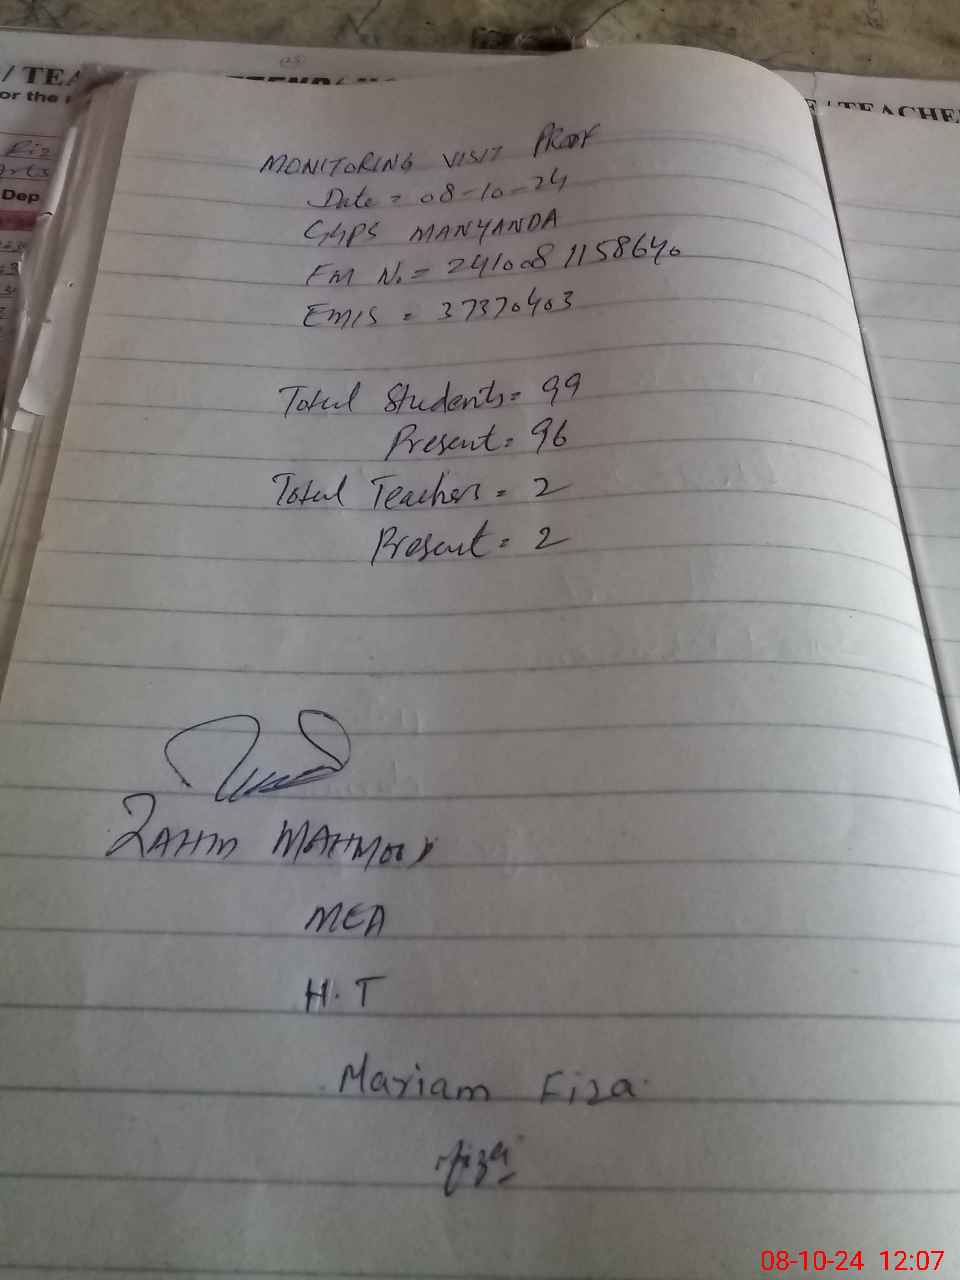 / TEA
or the
Riz
Dep
E / TEACHE
MONITORING VISIT PROOF
Date = 08-10-24
GGPS MANYANDA
FM No. = 241008 1158640
EMIS = 37370403
Total Students = 99
Present = 96
Total Teachers = 2
Present = 2
ZAHID MAHMOOD
MEA
H.T
Mariam Fiza
fiza
08-10-24 12:07